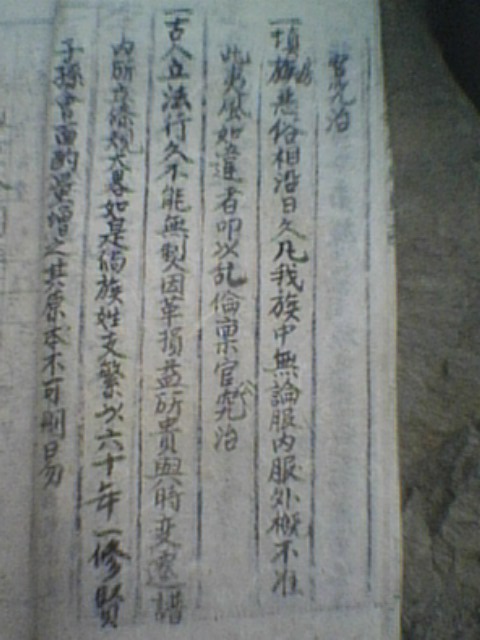 官究治
一填房惡俗相沿日久凡我族中無論服內服外概不准
此夷風如違者即以亂倫稟官究治
一古人立法行久不能無獘因革損益所貴與時变遷譜
內所立條規大畧如是倘族姓支繁以六十年一修賢
子孫書面酌量增之其原本不可刪易